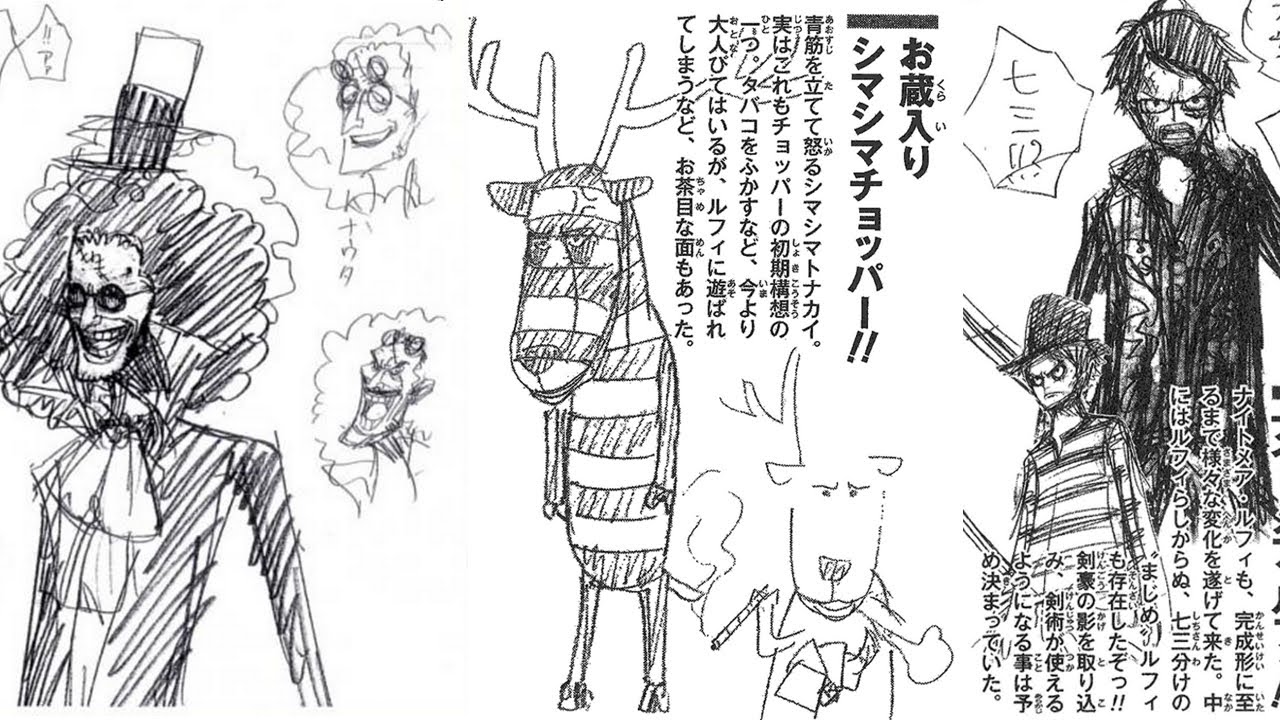 お蔵入り
シマシマチョッパー!!
青筋を立てて怒るシマシマトナカイ。
実はこれもチョッパーの初期構想の
一つ。タバコをふかすなど、今より
大人びてはいるが、ルフィに遊ばれ
てしまうなど、お茶目な面もあった。
七三!!?
ナイトメア・ルフィも、完成形に至
るまで様々な変化を遂げて来た。中
にはルフィらしからぬ、七三分けの
“まじめ”ルフィ
も存在したぞっ!!
剣豪の影を取り込
み、剣術が使える
ようになる事は予
め決まっていた。